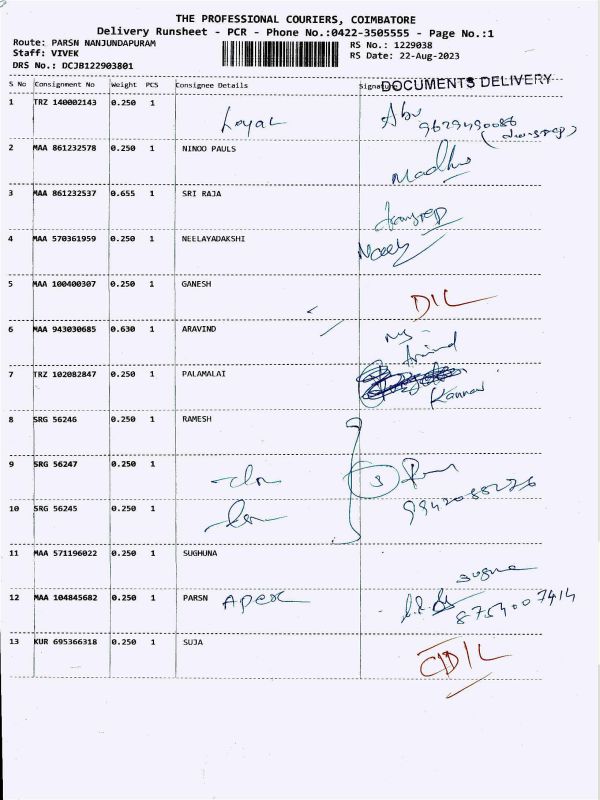 THE PROFESSIONAL COURIERS, COIMBATORE
Delivery Runsheet - PCR - Phone No.:0422-3505555 - Page No.:1
Route: PARSN NANJUNDAPURAM
Staff: VIVEK
DRS No.: DCJB122903801
RS No.: 1229038
RS Date: 22-Aug-2023
S No Consignment No Weight PCS Consignee Details Signature
DOCUMENTS DELIVERY
1 TRZ 140002143 0.250 1 Loyal Abu
2 MAA 861232578 0.250 1 NINOO PAULS Madhu
3 MAA 861232537 0.655 1 SRI RAJA
4 MAA 570361959 0.250 1 NEELAYADAKSHI
5 MAA 100400307 0.250 1 GANESH DIL
6 MAA 943030685 0.630 1 ARAVIND
7 TRZ 102082847 0.250 1 PALAMALAI Kannan
8 SRG 56246 0.250 1 RAMESH
9 SRG 56247 0.250 1 3
10 SRG 56245 0.250 1
11 MAA 571196022 0.250 1 SUGHUNA
12 MAA 104845682 0.250 1 PARSN Apex 8754007414
13 KUR 695366318 0.250 1 SUJA